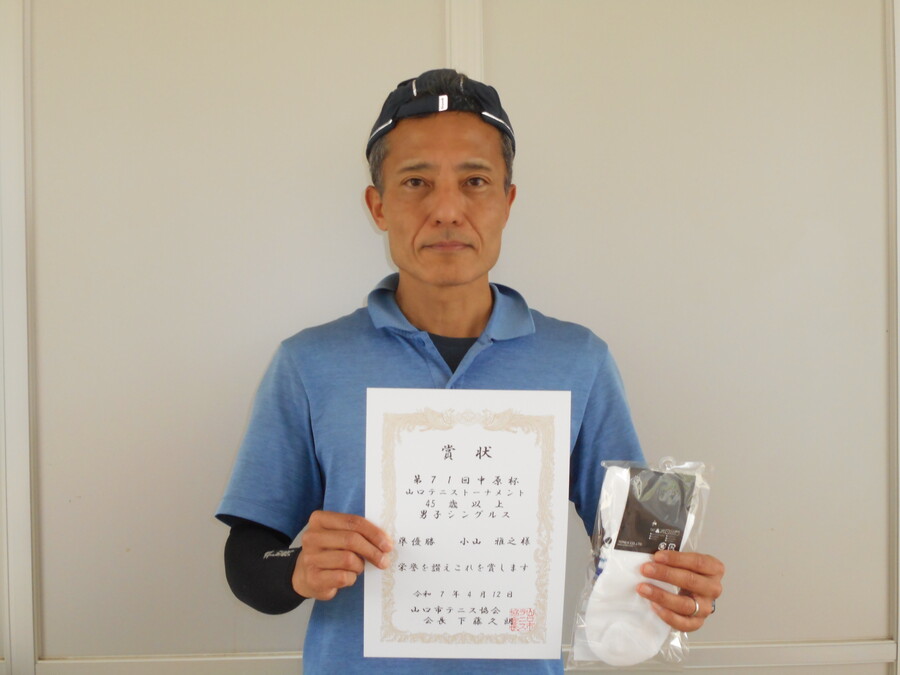 賞状
第71回中原杯
山口テニストーナメント
45歳以上
男子シングルス
準優勝 小山 雅之様
栄誉を讃えこれを賞します
令和7年4月12日
山口市テニス協会
会長 下藤文朗